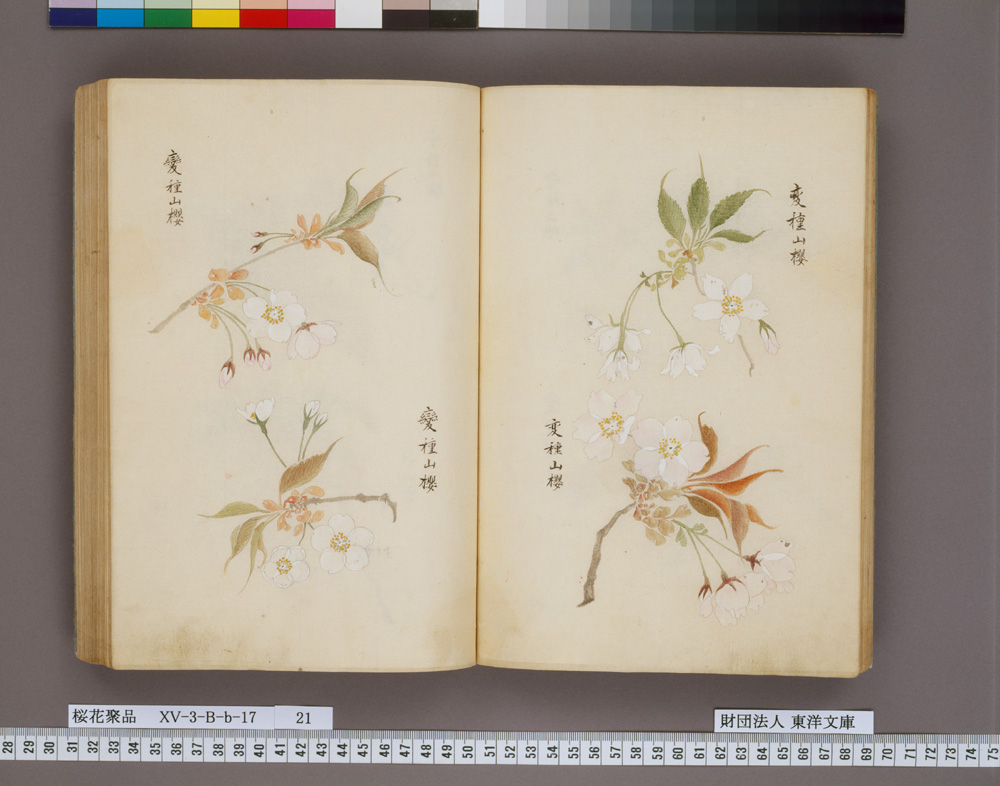 変種山櫻
変種山櫻
變種山櫻
變種山櫻
桜花聚品 XV-3-B-b-17 21
財団法人 東洋文庫
28 29 30 31 32 33 34 35 36 37 38 39 40 41 42 43 44 45 46 47 48 49 50 51 52 53 54 55 56 57 58 59 60 61 62 63 64 65 66 67 68 69 70 71 72 73 74 75